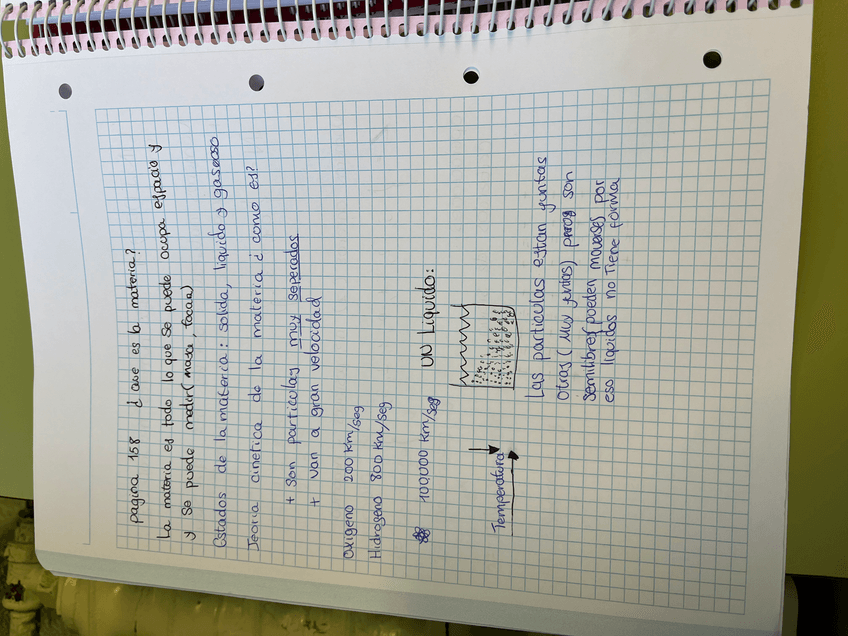 pagina 158 ¿ que es la materia?
La materia es todo lo que se puede ocupa espacio y
y se puede medir (masa, tocar)
Estados de la materia: solida, liquido y gaseoso
Teoria cinetica de la materia ¿ como es?
+ Son particulas muy seperados
+ van a gran velocidad
Oxigeno 200 km/seg
Hidrogeno 800 km/seg
100,000 km/seg
UN Liquido:
Temperatura
Las particulas estan juntas
otras (muy juntas) pero son
semilibres pueden moverses por
eso liquidos no tiene forma